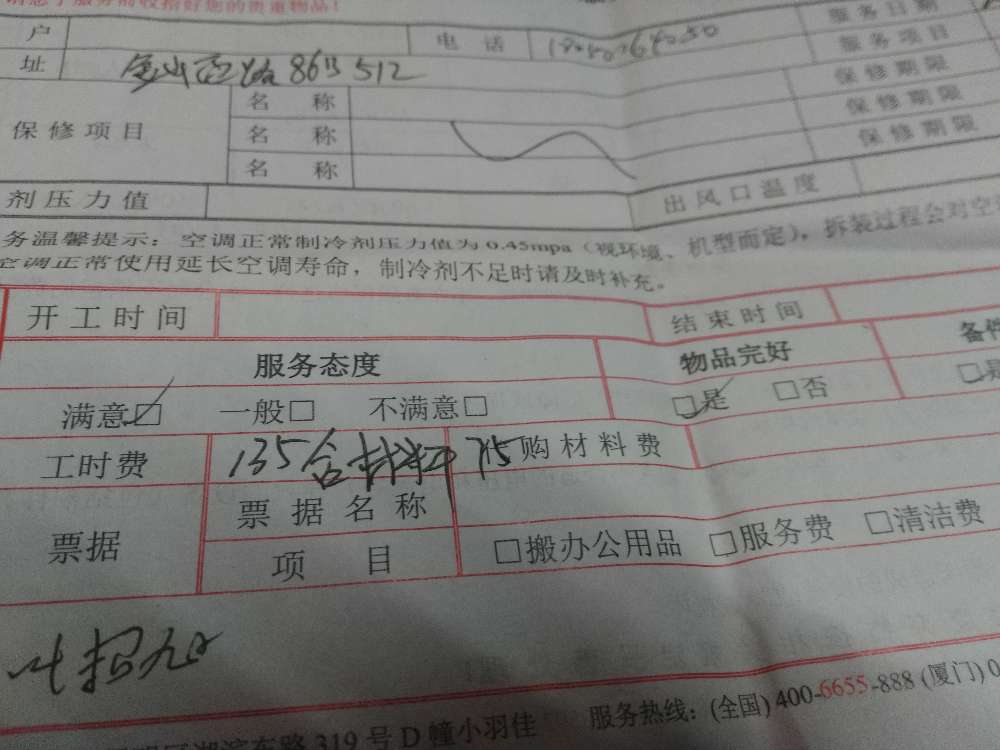 请您于服务前收拾好您的贵重物品!
户 电话 服务日期
服务项目
址 金山西路86号512
保修项目 名称 保修期限
名称 保修期限
名称 保修期限
剂压力值 出风口温度
务温馨提示：空调正常制冷剂压力值为0.45mpa（视环境、机型而定），拆装过程会对空
空调正常使用延长空调寿命，制冷剂不足时请及时补充。
开工时间 结束时间
服务态度 物品完好 备件
满意☑ 一般□ 不满意□ ☑是 □否 ☑是
工时费 135含材料 购材料费
票据 票据名称
项目 □搬办公用品 □服务费 □清洁费
服务热线：(全国)400-6655-888(厦门)0
湖滨东路319号D幢小羽佳